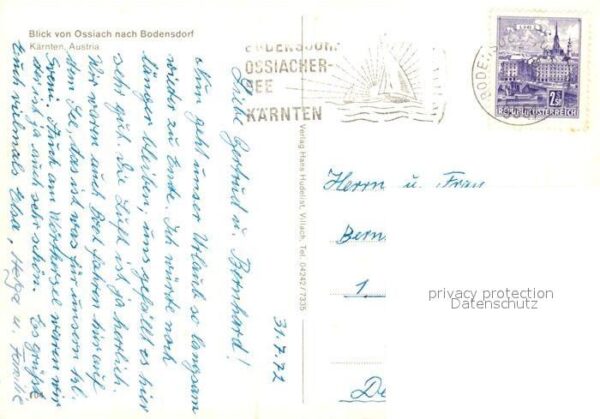 Blick von Ossiach nach Bodensdorf
Kärnten, Austria
BODENSDORF
OSSIACHER-
SEE
KÄRNTEN
2.50
REPUBLIK ÖSTERREICH
Verlag Hans Hudelist, Villach, Tel. 04242/7335
31.7.72
Liebe Gertrud u. Bernhard!
Nun geht unser Urlaub so langsam
wieder zu Ende. Ich würde noch
länger bleiben, uns gefällt es hier
sehr gut. Die Luft ist ja herrlich.
Wir waren auch Boot fahren hier auf
dem See, das ist was für unsern kl.
Sveni. Auch am Wörthersee waren wir
der ist ja auch sehr schön. Es grüßt
Euch nochmals Elsa, Helga u. Familie
Herrn u. Frau
Bern
1
De
privacy protection
Datenschutz